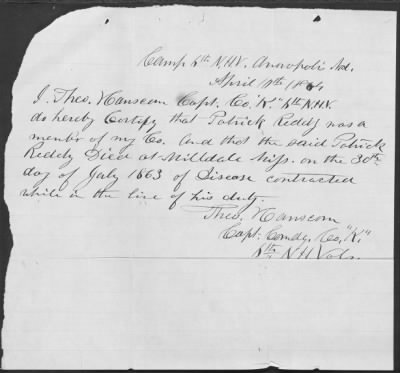 Camp 6th N.H.V. Annapolis Md.
April 11th 1864
I. Theo. Hanscom Capt. Co. "K." 6th N.H.V.
do hereby Certify that Patrick Reddy was a
member of my Co. And that the said Patrick
Reddy Died at Milldale Miss. on the 30th
day of July 1863 of Disease contracted
while in the line of his duty.
Theo. Hanscom
Capt. Comdg. Co. "K."
6th N.H. Vols.